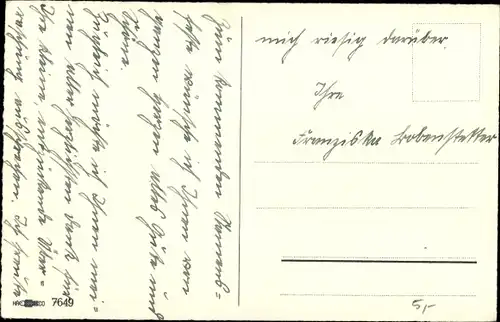 Zum kommenden Namens=
feste wünsche ich Ihnen von
ganzem Herzen alles Gute und
Liebe.
Zugleich möchte ich Ihnen mei=
nen allerherzlichsten Dank für
Ihre kleine, entzückende Über=
raschung aussprechen. Ich freute
mich riesig darüber.
Ihre
Franziska Lobenstetter
7649
5,-